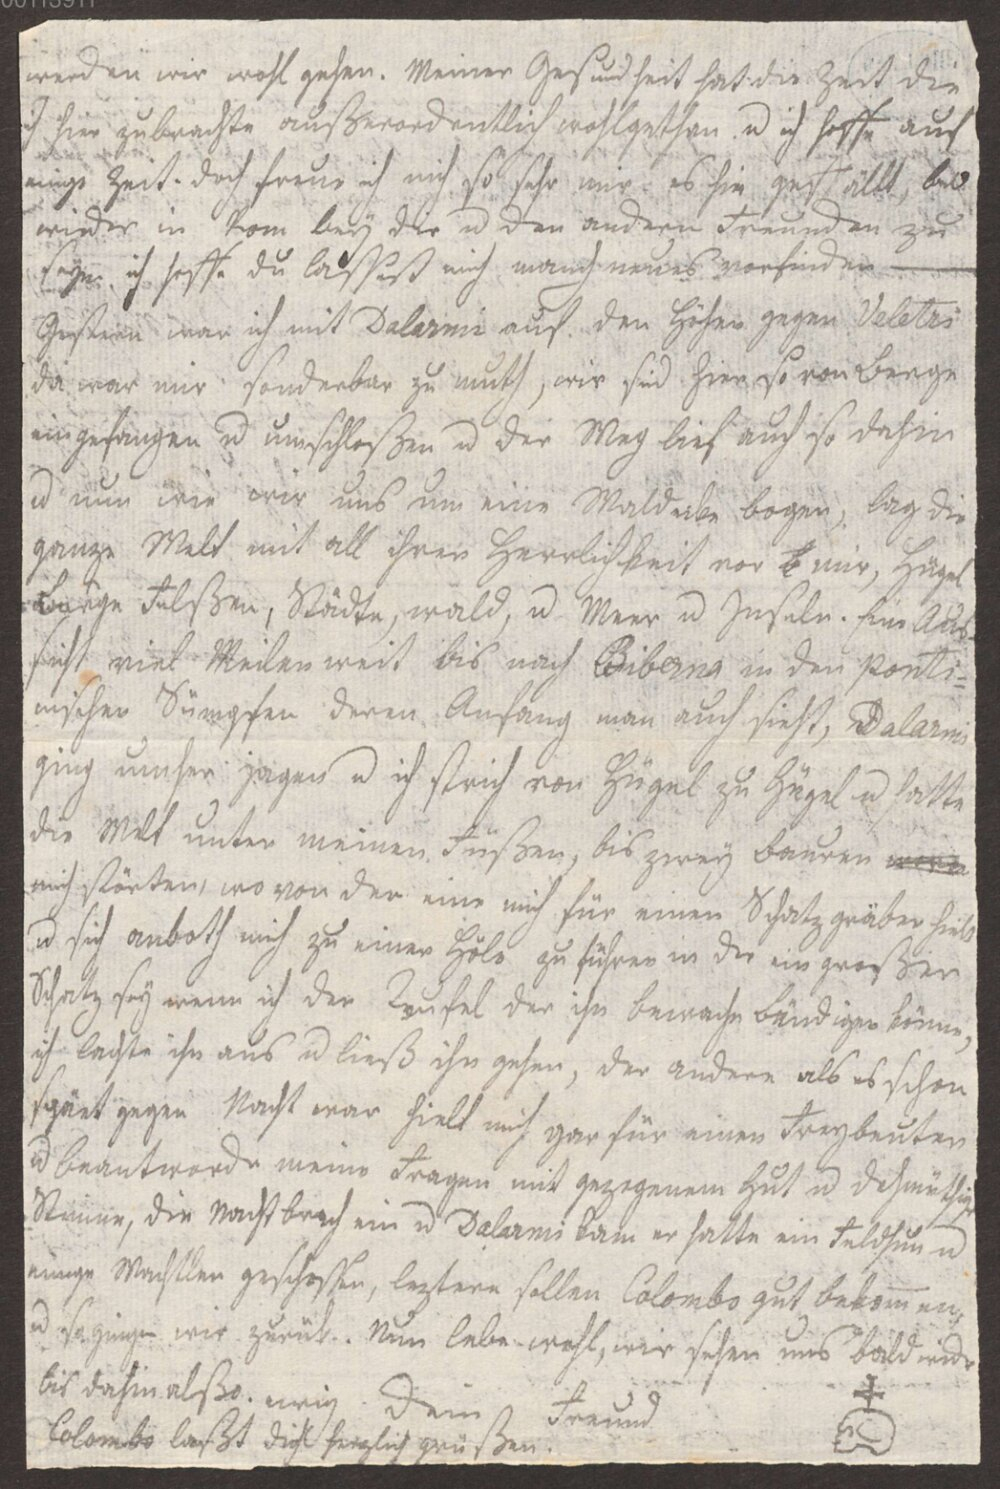 00113911
werden wir wohl gehen. Meiner Gesundheit hat die Zeit die
ich hier zubrachte außerordentlich wohlgethan u ich hoffe auf
einige Zeit. doch freue ich mich so sehr mir es hier gefällt,
wieder in Rom bey dir u den andern Freunden zu
seyn. ich hoffe du lassest mich manch neues vorfinden —
Gestern war ich mit Dalarmi auf den Höhen gegen Veletri
da war mir sonderbar zu muth, wir sind hier so von Berge
eingefangen u umschloßen u der Weg lief auch so dahin
u nun wie wir uns um eine Waldecke bogen, lag die
ganze Welt mit all ihrer Herrlichkeit vor mir, Hügel
Berge Felßen, Städte, wald, u Meer u Inseln. Eine Aus-
sicht viel Meilen weit bis nach Biberna in den Ponti=
nischen Sümpfen deren Anfang man auch sieht, Dalarmi
ging umher jagen u ich strich von Hügel zu Hügel u hatte
die Welt unter meinen Füßen, bis zwey Bauren
mich störten, wo von der eine mich für einen Schatzgräber hielt
u sich anboth mich zu einer Höle zu führen in der ein großer
Schatz sey wenn ich der Teufel der ihn bewache bändigen könne,
ich lachte ihn aus u ließ ihn gehen, der andere als es schon
spät gegen Nacht war hielt mich gar für einen Freybeuter
u beantworde meine Fragen mit gezogenem Hut u dehmüthiger
Stimme, die Nacht brach ein u Dalarmi kam er hatte ein Feldhun u
einige Wachtlen geschossen, leztere sollen Colombo gut bekommen,
u so gingen wir zurük. Nun lebe wohl, wir sehen uns bald wieder
bis dahin alßo. ewig Dein Freund
Colombo laßt dich herzlich grüßen.